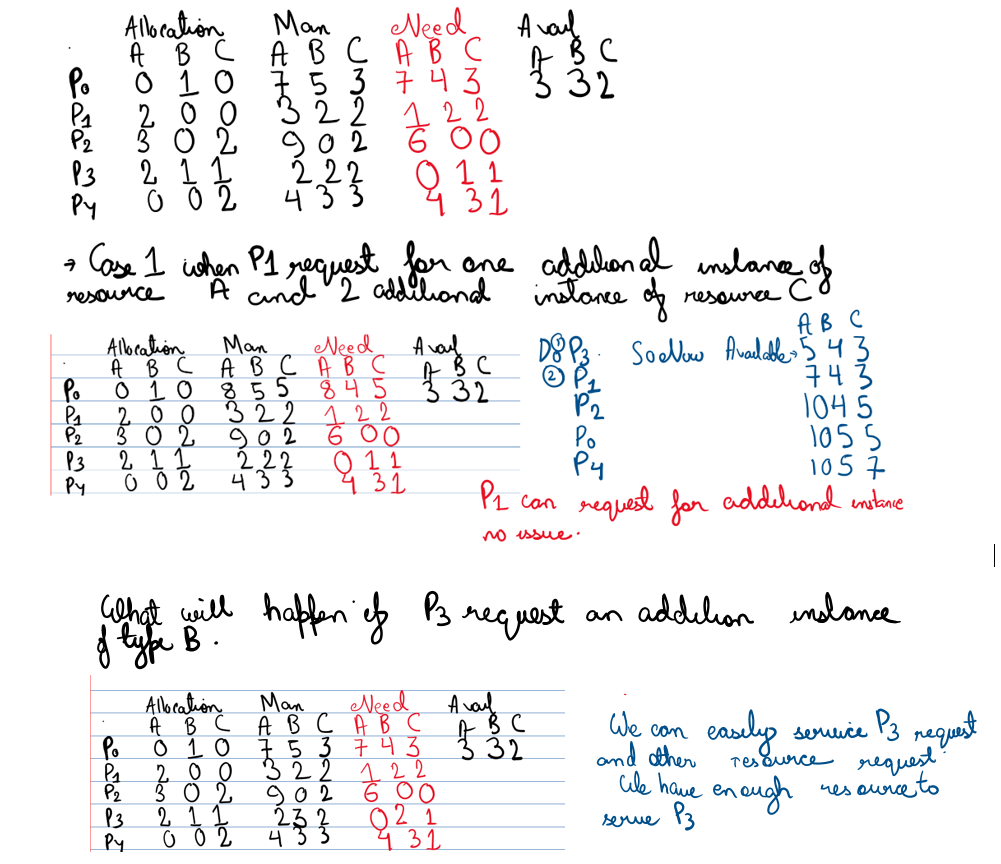 Allocation Max Need Avail
A B C A B C A B C A B C
P0 0 1 0 7 5 3 7 4 3 3 3 2
P1 2 0 0 3 2 2 1 2 2
P2 3 0 2 9 0 2 6 0 0
P3 2 1 1 2 2 2 0 1 1
P4 0 0 2 4 3 3 4 3 1
→ Case 1 when P1 request for one additional instance of
resource A and 2 additional instance of resource C
Allocation Max Need Avail
A B C A B C A B C A B C
P0 0 1 0 8 5 5 8 4 5 3 3 2
P1 2 0 0 3 2 2 1 2 2
P2 3 0 2 9 0 2 6 0 0
P3 2 1 1 2 2 2 0 1 1
P4 0 0 2 4 3 3 4 3 1
A B C
① P3 So Now Available → 5 4 3
② P1 7 4 3
P2 10 4 5
P0 10 5 5
P4 10 5 7
P1 can request for additional instance
no issue.
What will happen if P3 request an addition instance
of type B.
Allocation Max Need Avail
A B C A B C A B C A B C
P0 0 1 0 7 5 3 7 4 3 3 3 2
P1 2 0 0 3 2 2 1 2 2
P2 3 0 2 9 0 2 6 0 0
P3 2 1 1 2 3 2 0 2 1
P4 0 0 2 4 3 3 4 3 1
We can easily service P3 request
and other resource request.
We have enough resource to
serve P3